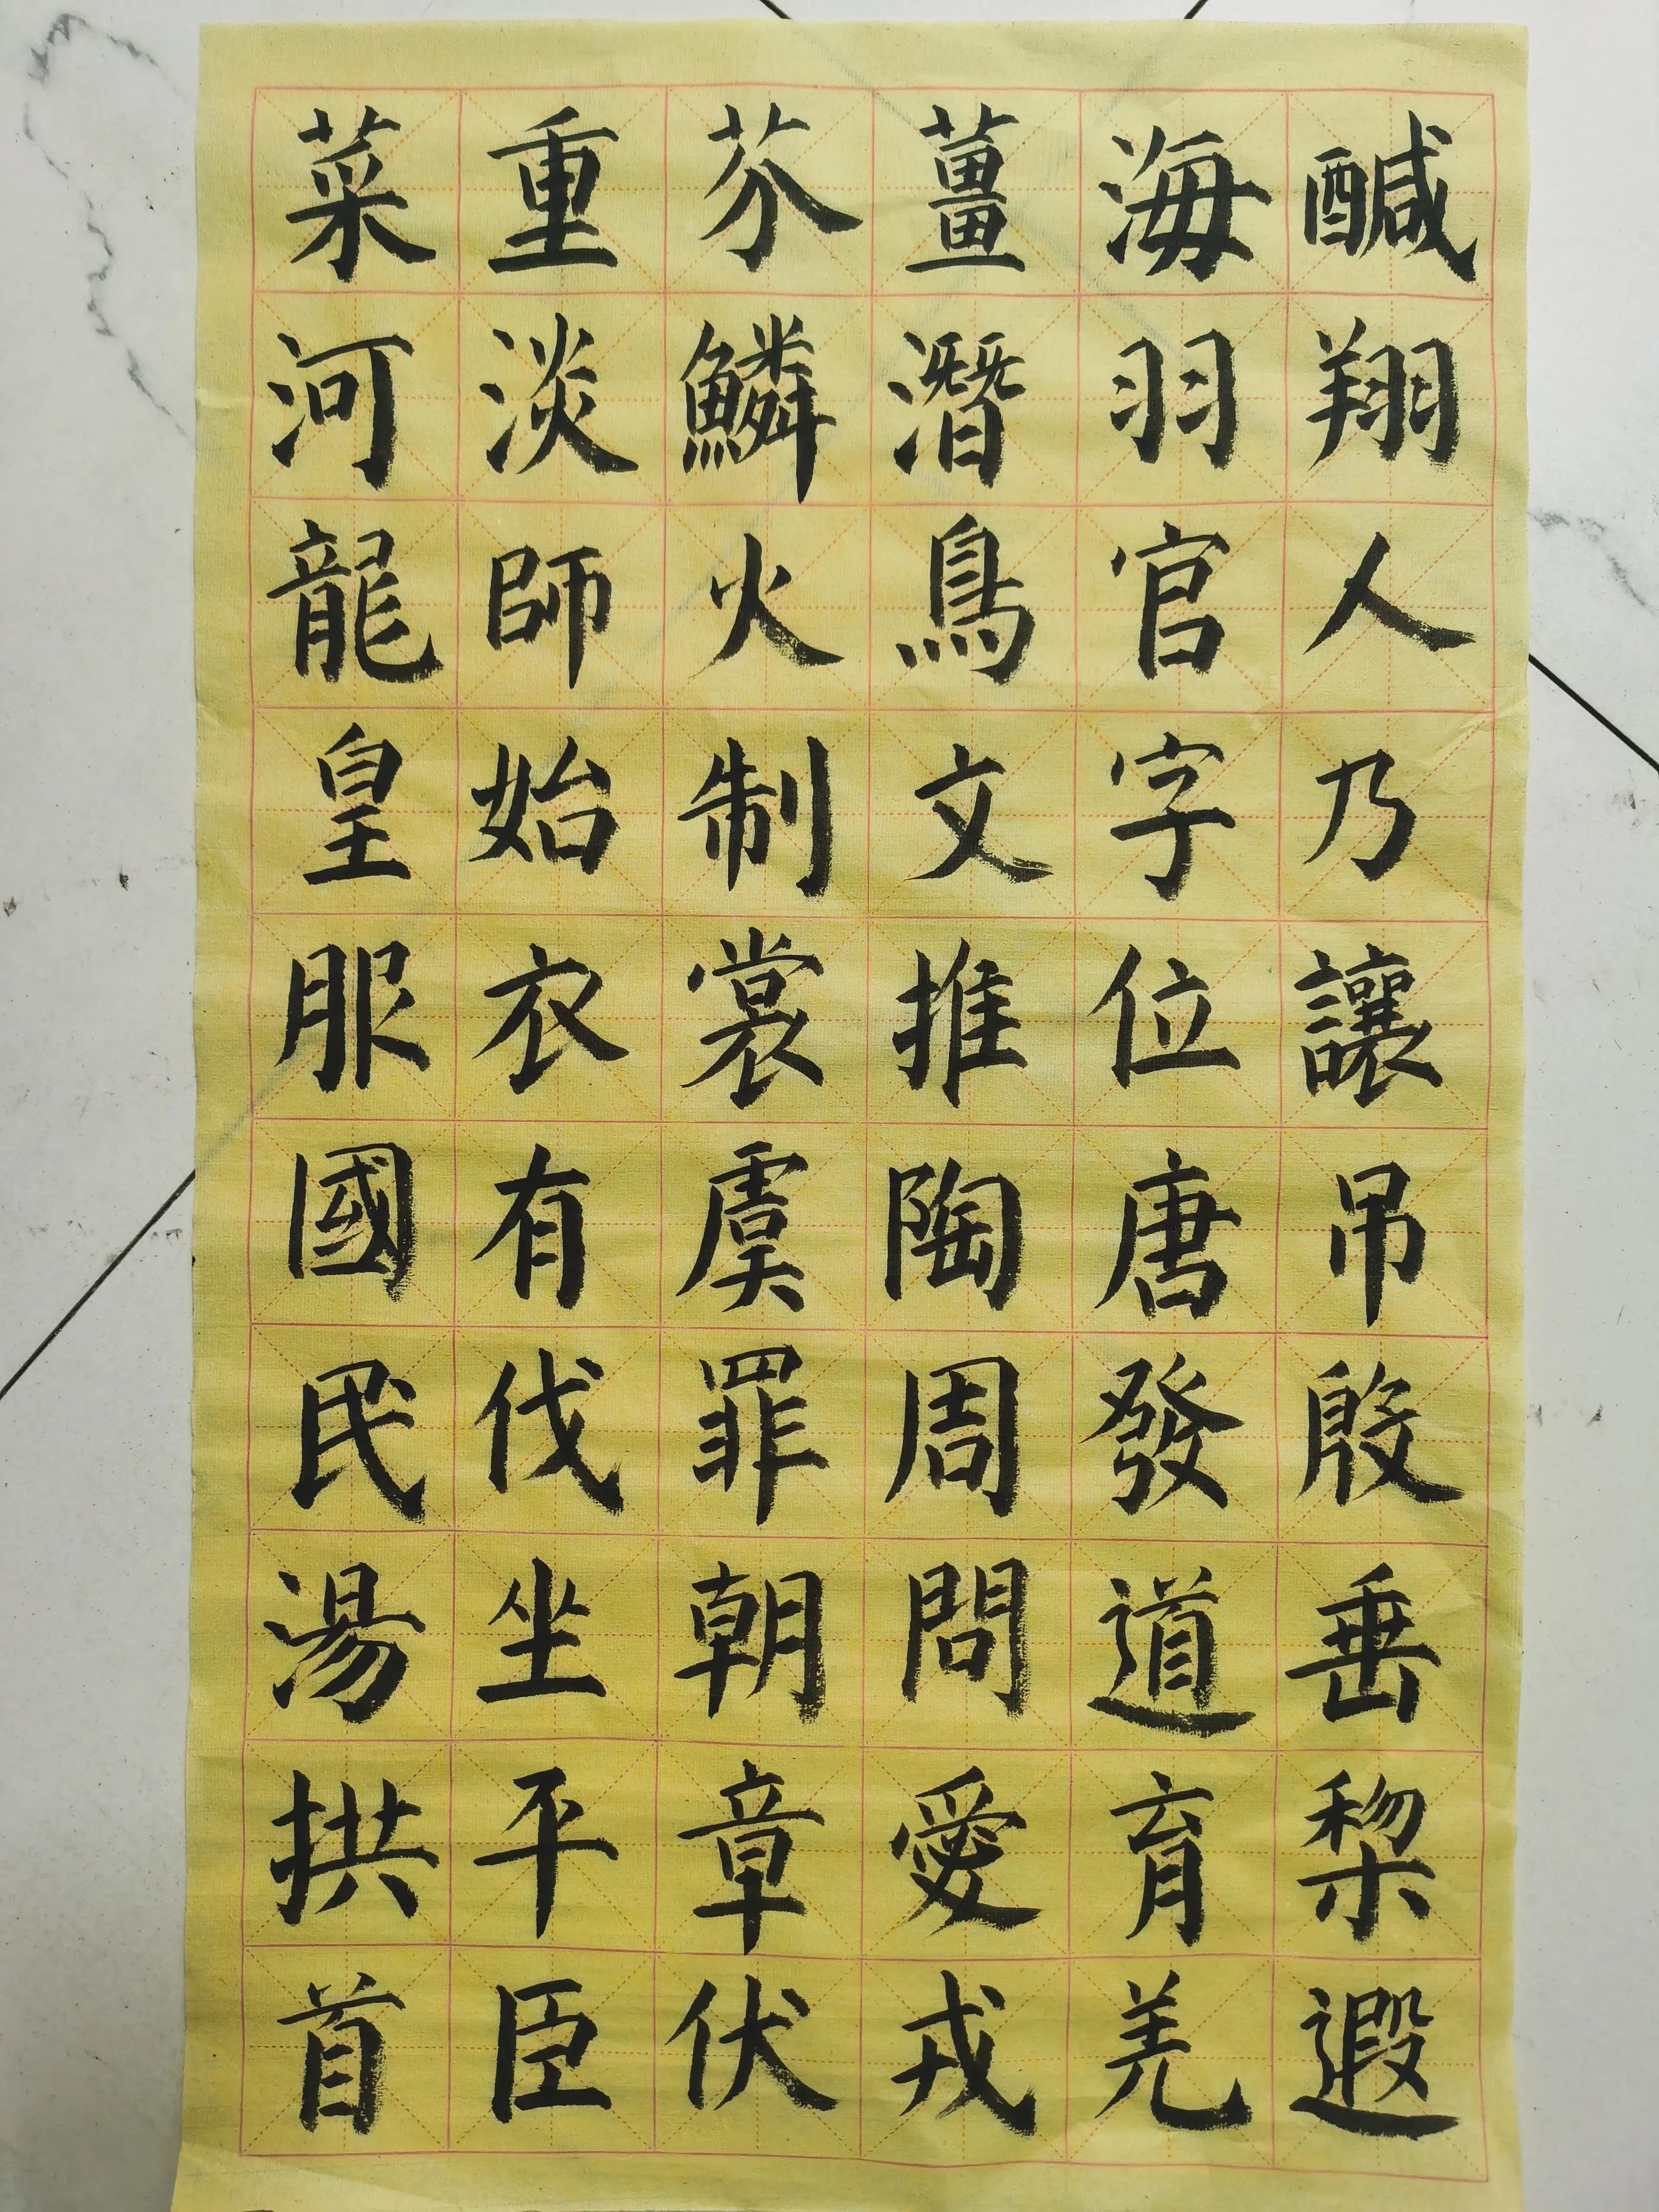 菜重芥薑海醎
河淡鱗潛羽翔
龍師火鳥官人
皇始制文字乃
服衣裳推位讓
國有虞陶唐吊
民伐罪周發殷
湯坐朝問道垂
拱平章愛育黎
首臣伏戎羌遐